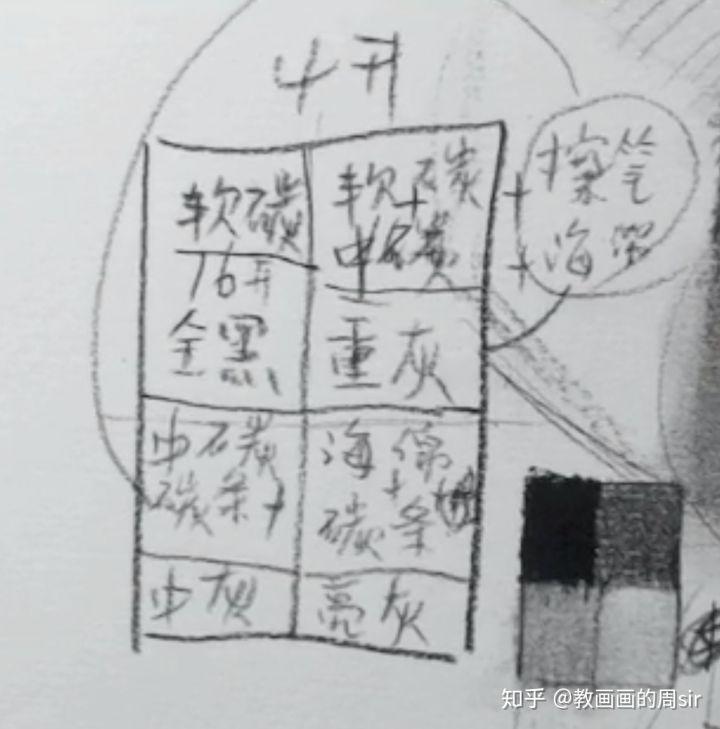 4开
软碳
16开
全黑
软碳
+
中碳
重灰
+擦笔
+海绵
中碳
碳条+
中灰
海绵
+
碳条
亮灰
知乎 @教画画的周sir